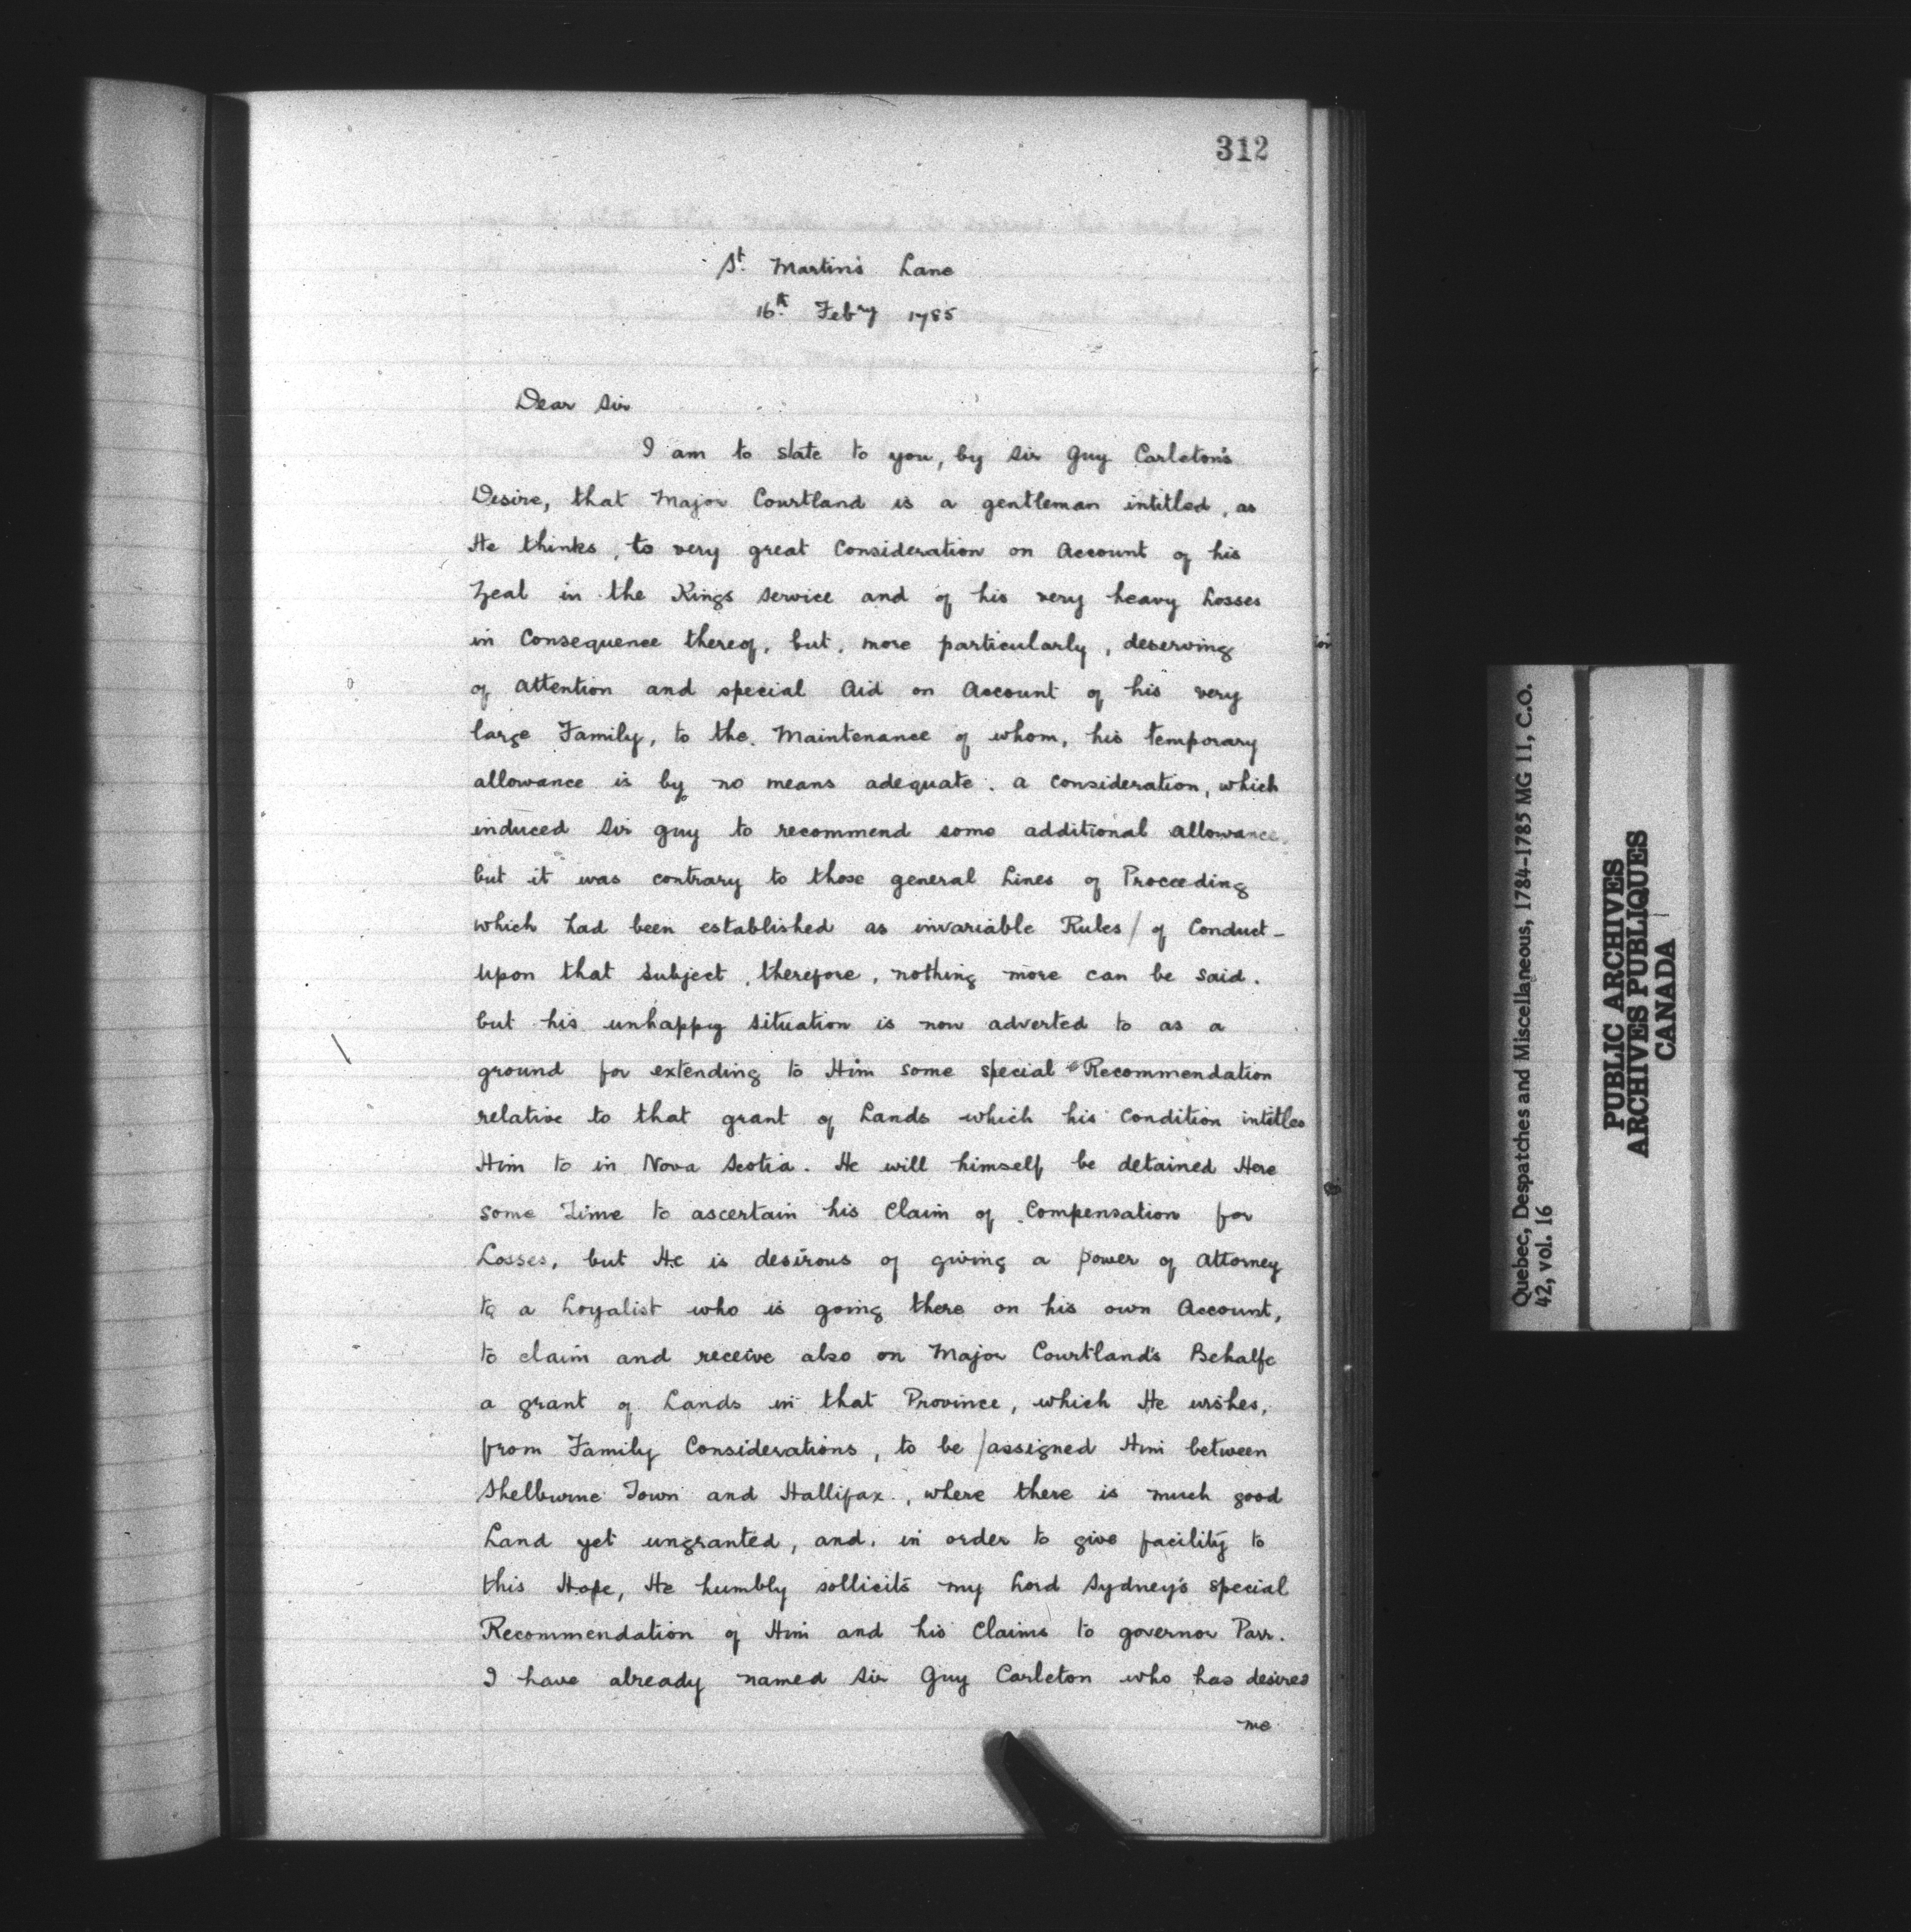 312
St. Martin's Lane
16th Febry 1785
Dear Sir
I am to state to you, by Sir Guy Carleton's
Desire, that Major Courtland is a gentleman intitled, as
He thinks, to very great Consideration on Account of his
Zeal in the Kings Service and of his very heavy Losses
in Consequence thereof, but, more particularly, deserving
of Attention and special Aid on Account of his very
large Family, to the Maintenance of whom, his temporary
allowance is by no means adequate. a consideration, which
induced Sir Guy to recommend some additional allowance,
but it was contrary to those general Lines of Proceeding
which had been established as invariable Rules / of Conduct -
upon that subject, therefore, nothing more can be said.
but his unhappy Situation is now adverted to as a
ground for extending to Him some special Recommendation
relative to that grant of Lands which his Condition intitles
Him to in Nova Scotia. He will himself be detained Here
some Time to ascertain his Claim of Compensation for
Losses, but He is desirous of giving a power of Attorney
to a Loyalist who is going there on his own Account,
to claim and receive also on Major Courtland's Behalfe
a grant of Lands in that Province, which He wishes,
from Family Considerations, to be / assigned Him between
Shelburne Town and Hallifax, where there is much good
Land yet ungranted, and, in order to give facility to
this Hope, He humbly sollicits my Lord Sydney's special
Recommendation of Him and his Claims to governor Parr.
I have already named Sir Guy Carleton who has desired
me
Quebec, Despatches and Miscellaneous, 1784-1785 MG 11, C.O.
42, vol. 16
PUBLIC ARCHIVES
ARCHIVES PUBLIQUES
CANADA